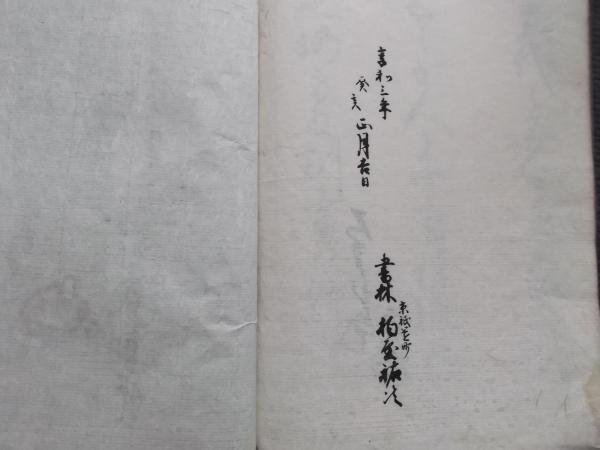 享和三年
癸亥
正月吉日
書林
京祇園町
柏屋祐次